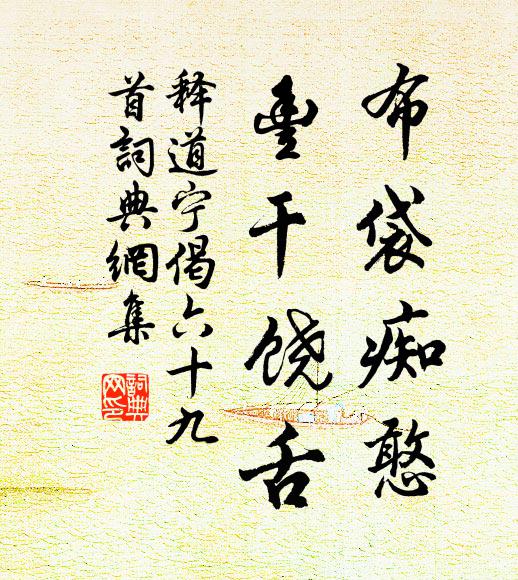 布袋痴憨
豊干饶舌
释道宁偈六十九
首詞典網集
詞典
网印